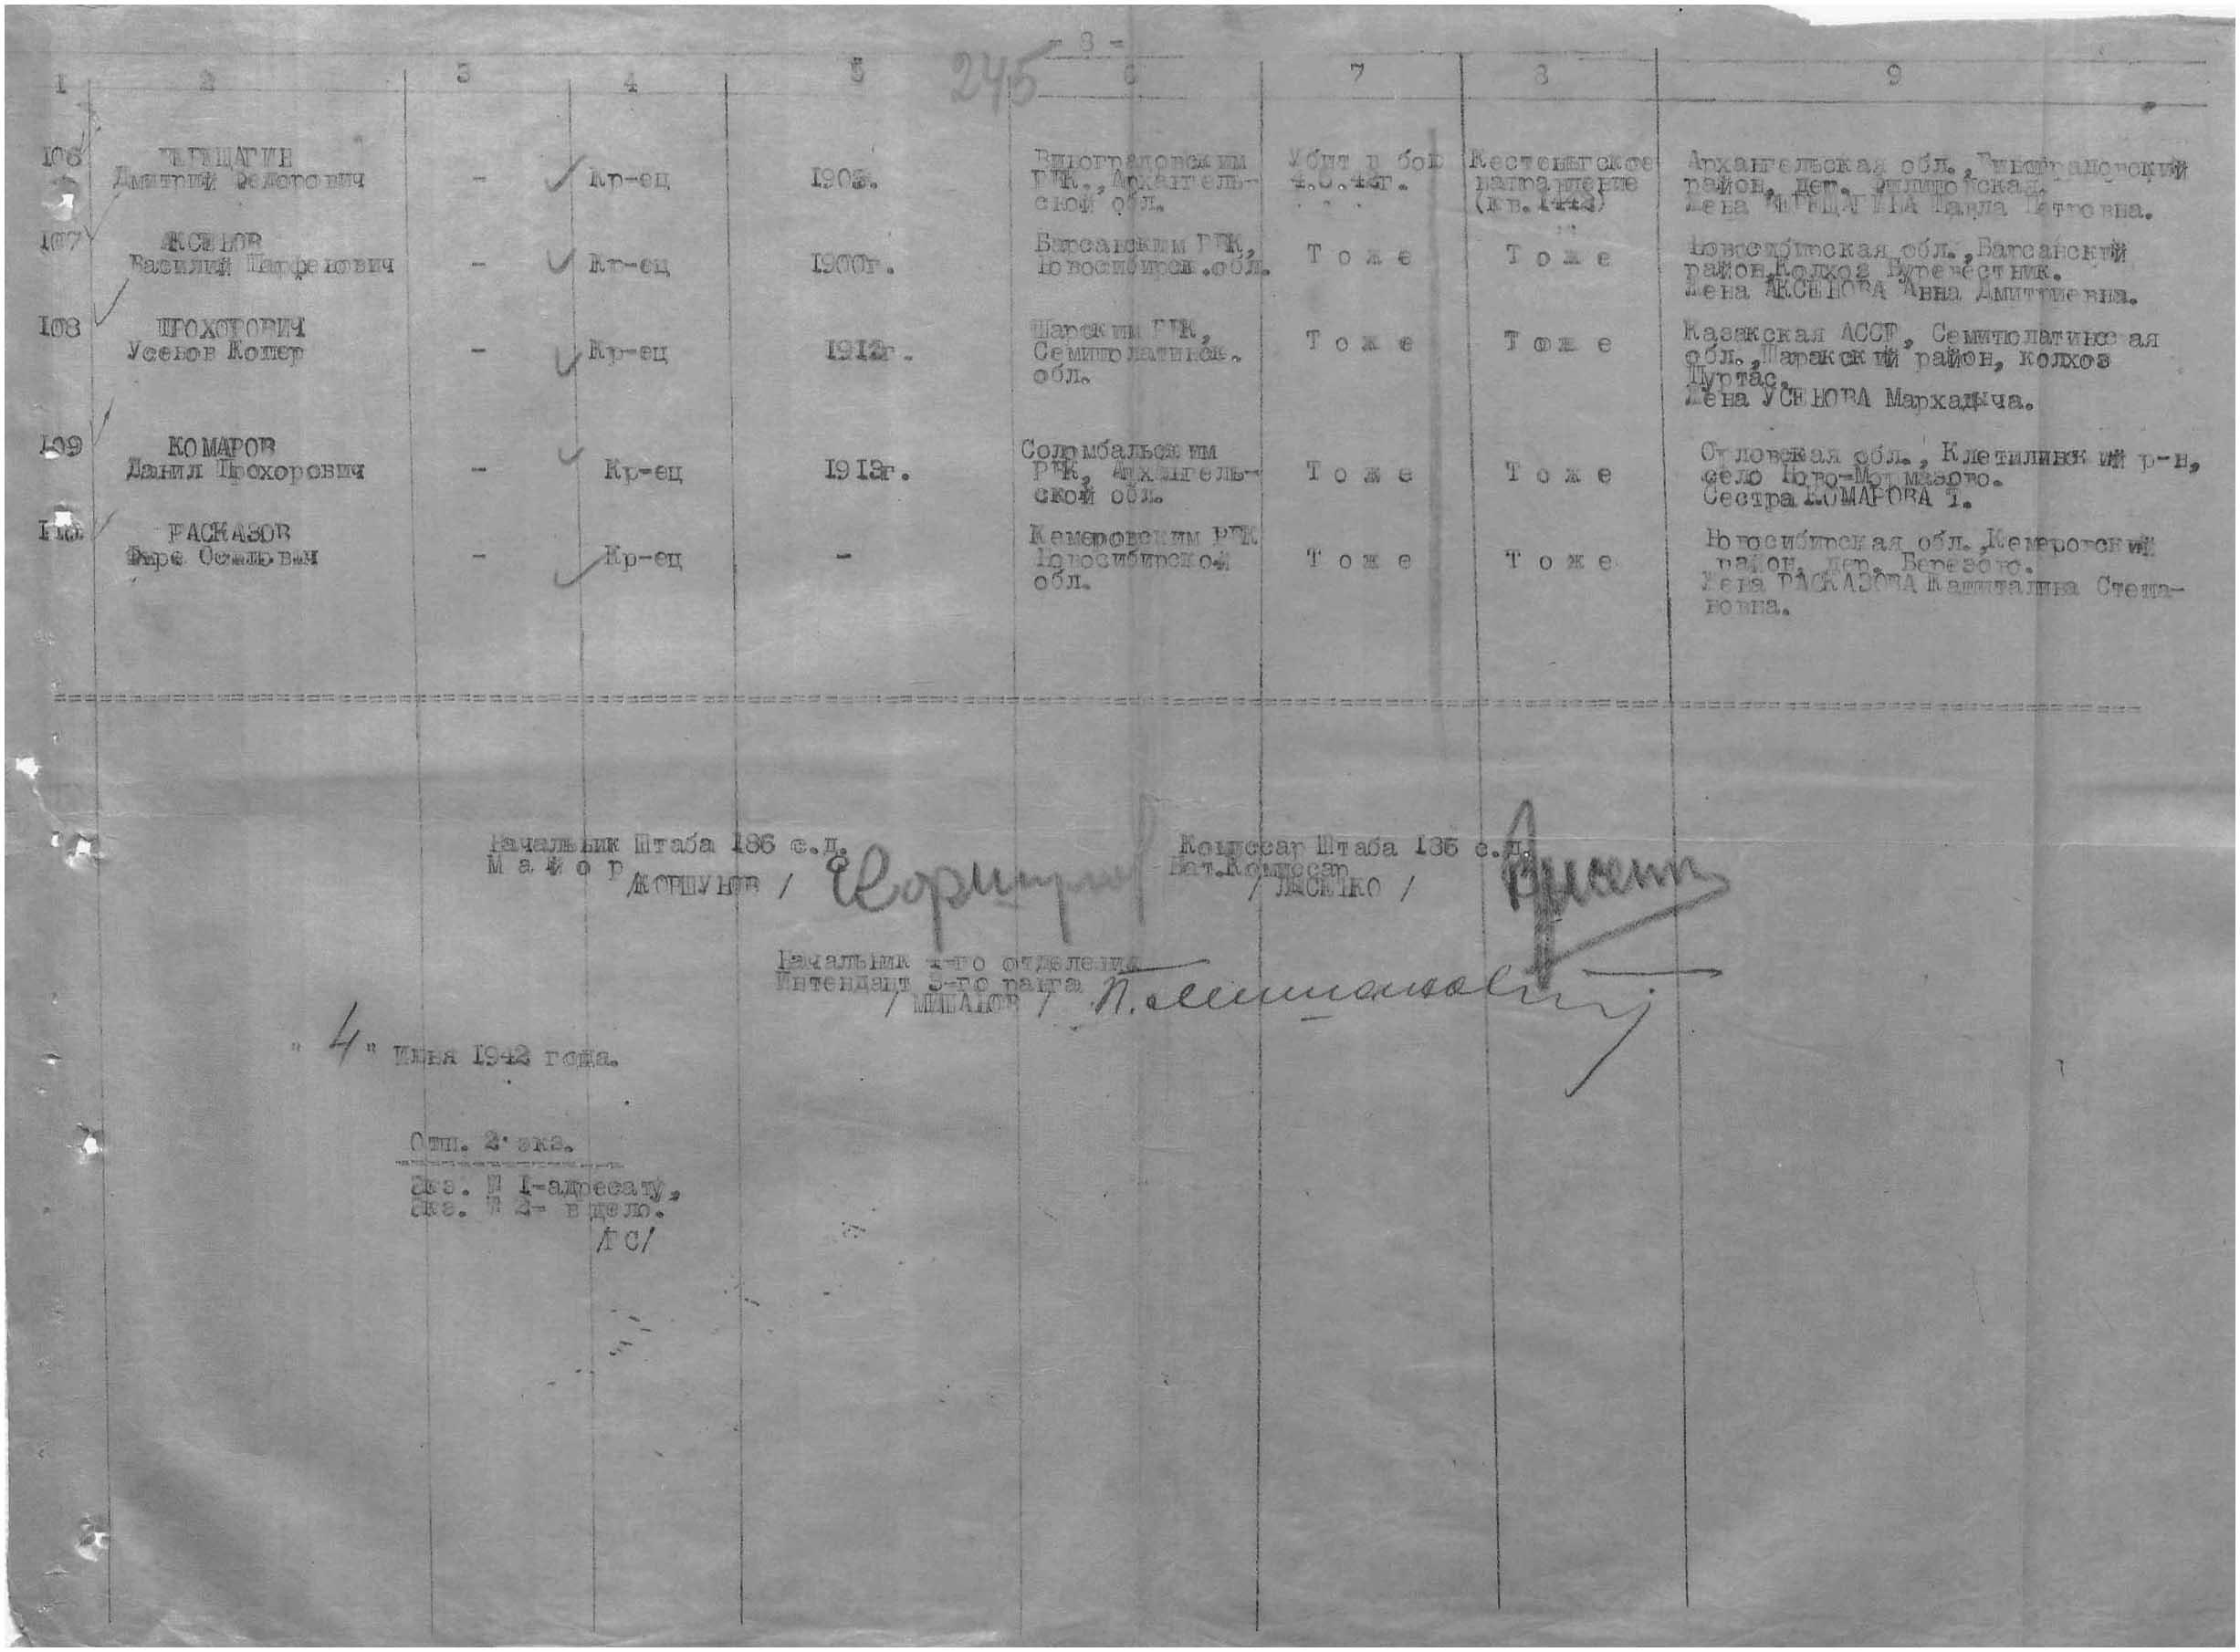 - 8 -
245
1 2 3 4 5 6 7 8 9
106 ВЕРЕЩАГИН
Дмитрий Федорович - Кр-ец 1903г.
Виноградовским
РВК., Архангель-
ской обл.
Убит в бою
Кестеньгское
направление
(кв. 1442)
Архангельская обл., Виноградовский
район, дер.
Жена ВЕРЕЩАГИНА Павла Петровна.
107 АКСЕНОВ
Василий Парфенович - Кр-ец 1900г.
РВК,
Новосибирск.обл.
Тоже
Тоже
Новосибирская обл.,
район, Колхоз Буревестник.
Жена АКСЕНОВА Анна Дмитриевна.
108 ПРОХОРОВИЧ
Усенов - Кр-ец 1912г.
РВК,
Семиполатинск.
обл.
Тоже
Тоже
Казакская АССР, Семиполатинская
обл., район, колхоз
Жена УСЕНОВА Мархадыча.
109 КОМАРОВ
Данил Прохорович - Кр-ец 1913г.
Соломбальским
РВК, Архангель-
ской обл.
Тоже
Тоже
Орловская обл., р-н,
село
Сестра КОМАРОВА
110. РАСКАЗОВ
- Кр-ец -
Кемеровским РВК
Новосибирской
обл.
Тоже
Тоже
Новосибирская обл., Кемеровский
район, дер. Березово.
Жена РАСКАЗОВА Капиталина Степа-
новна.
Начальник Штаба 186 с.д.
Майор
/КОРШУНОВ /
Комиссар Штаба 186 с.д.
Бат.Комиссар
/ ЛЫСЕНКО /
Начальник 4-го отделения
Интендант 3-го ранга
/ /
" 4 " Июня 1942 года.
Отп. 2 экз.
Экз. № 1-адресату,
Экз. № 2- в дело.
/ГС/